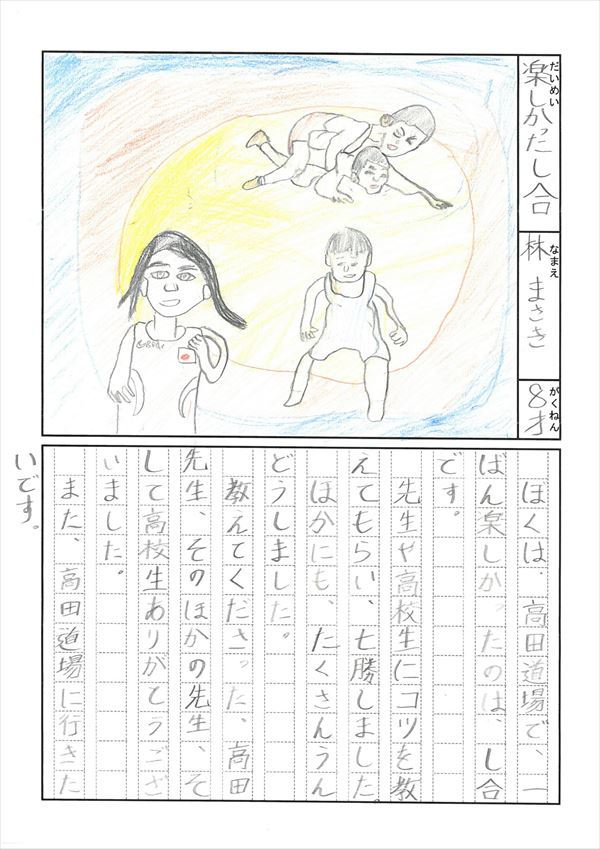 だいめい
楽しかったし合
なまえ
林まさき
がくねん
8才
ぼくは、高田道場で、一
ばん楽しかったのは、し合
です。
先生や高校生にコツを教
えてもらい、七勝しました。
ほかにも、たくさんうん
どうしました。
教えてくださった、高田
先生、そのほかの先生、そ
して高校生ありがとうござ
いました。
また、高田道場に行きた
いです。